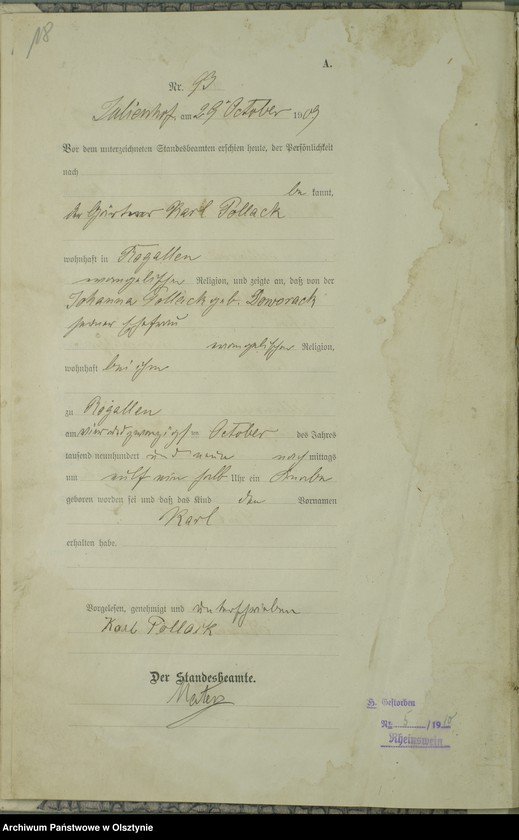 18
A.
Nr. 93
Julienhof, am 29ten October 1909
Vor dem unterzeichneten Standesbeamten erschien heute, der Persönlichkeit
nach
be kannt,
der Gärtner Karl Pollack
wohnhaft in Rogallen
evangelischer Religion, und zeigte an, daß von der
Johanna Pollack geb. Doworack
seiner Ehefrau
evangelischer Religion,
wohnhaft bei ihm
zu Rogallen
am vierundzwanzigsten October des Jahres
tausend neunhundert und neun nach mittags
um ein halb Uhr ein Knabe
geboren worden sei und daß das Kind den Vornamen
Karl
erhalten habe.
Vorgelesen, genehmigt und unterschrieben
Karl Pollack
Der Standesbeamte.
Gestorben
Nr. 5 /19
Rheinswein
Archiwum Państwowe w Olsztynie